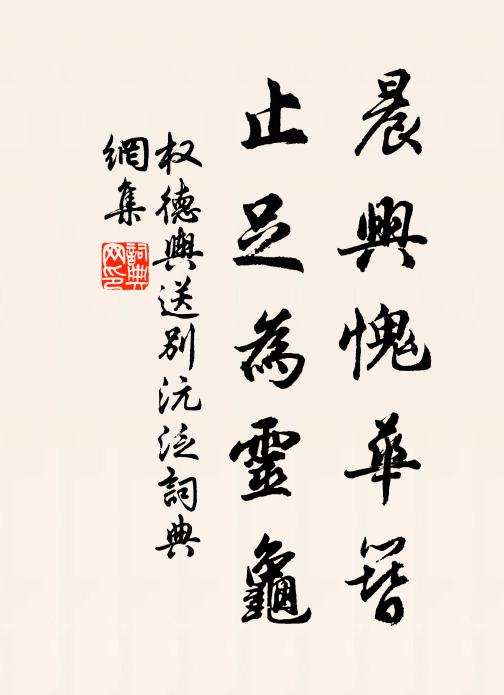 晨興愧華簪
止足為靈龜
权德輿送別沅泛詞典
網集
詞典
网印